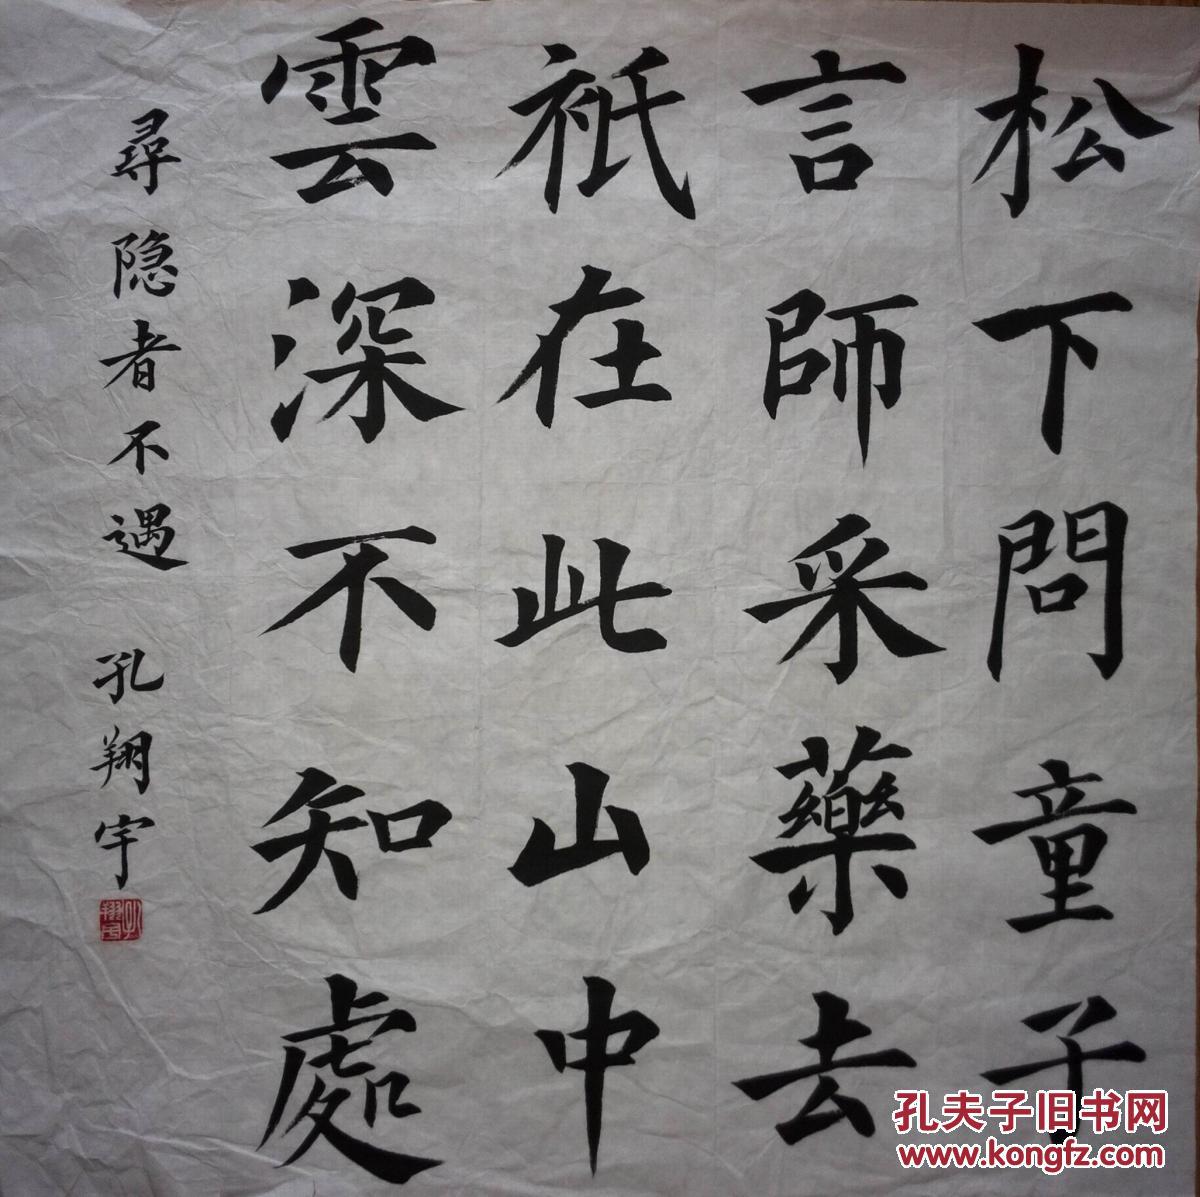 松下問童子
言師采藥去
衹在此山中
雲深不知處
尋隐者不遇 孔翔宇
孔夫子旧书网
www.kongfz.com